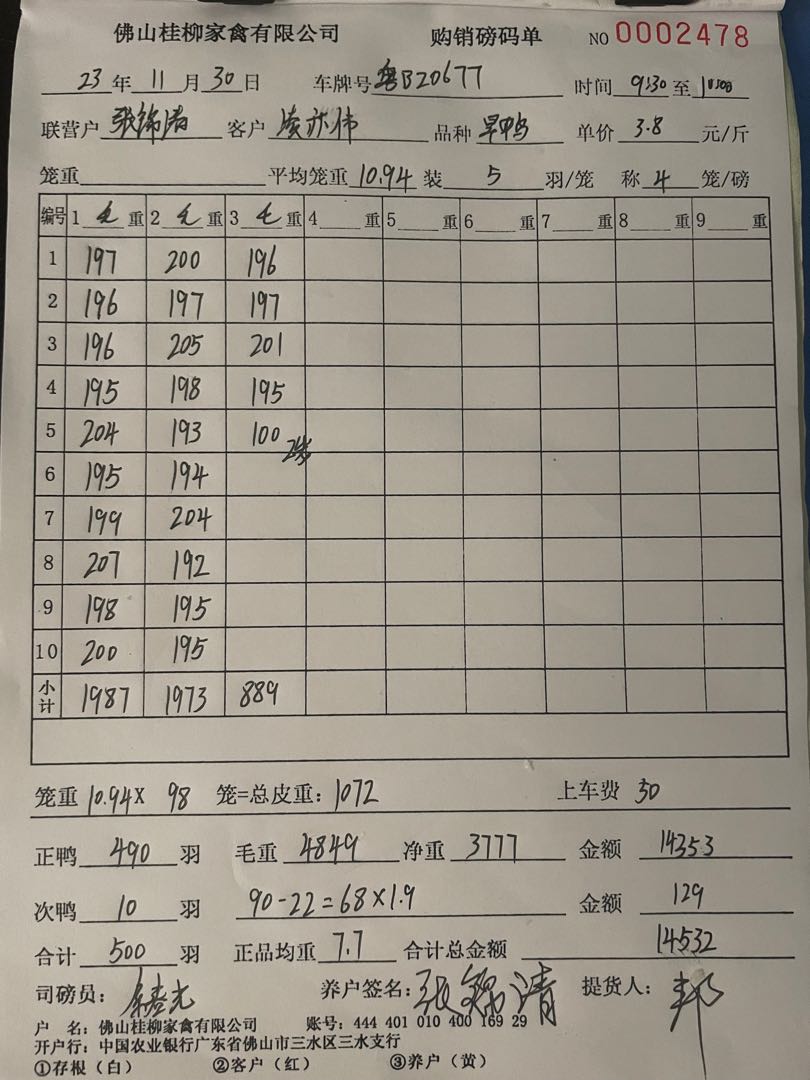 佛山桂柳家禽有限公司 购销磅码单 NO 0002478
23 年 11 月 30 日 车牌号 粤B20677 时间 9:30 至 10:00
联营户 张锦清 客户 品种 旱鸭 单价 3.8 元/斤
笼重 平均笼重 10.94 装 5 羽/笼 称 4 笼/磅
编号 1 毛 重 2 毛 重 3 毛 重 4 重 5 重 6 重 7 重 8 重 9 重
1 197 200 196
2 196 197 197
3 196 205 201
4 195 198 195
5 204 193 100 2笼
6 195 194
7 199 204
8 207 192
9 198 195
10 200 195
小计 1987 1973 889
笼重 10.94X 98 笼=总皮重: 1072 上车费 30
正鸭 490 羽 毛重 4849 净重 3777 金额 14353
次鸭 10 羽 90-22=68×1.9 金额 129
合计 500 羽 正品均重 7.7 合计总金额 14532
司磅员: 养户签名: 张锦清 提货人: 邦
户 名: 佛山桂柳家禽有限公司 账号: 444 401 010 400 169 29
开户行: 中国农业银行广东省佛山市三水区三水支行
①存根(白) ②客户(红) ③养户(黄)